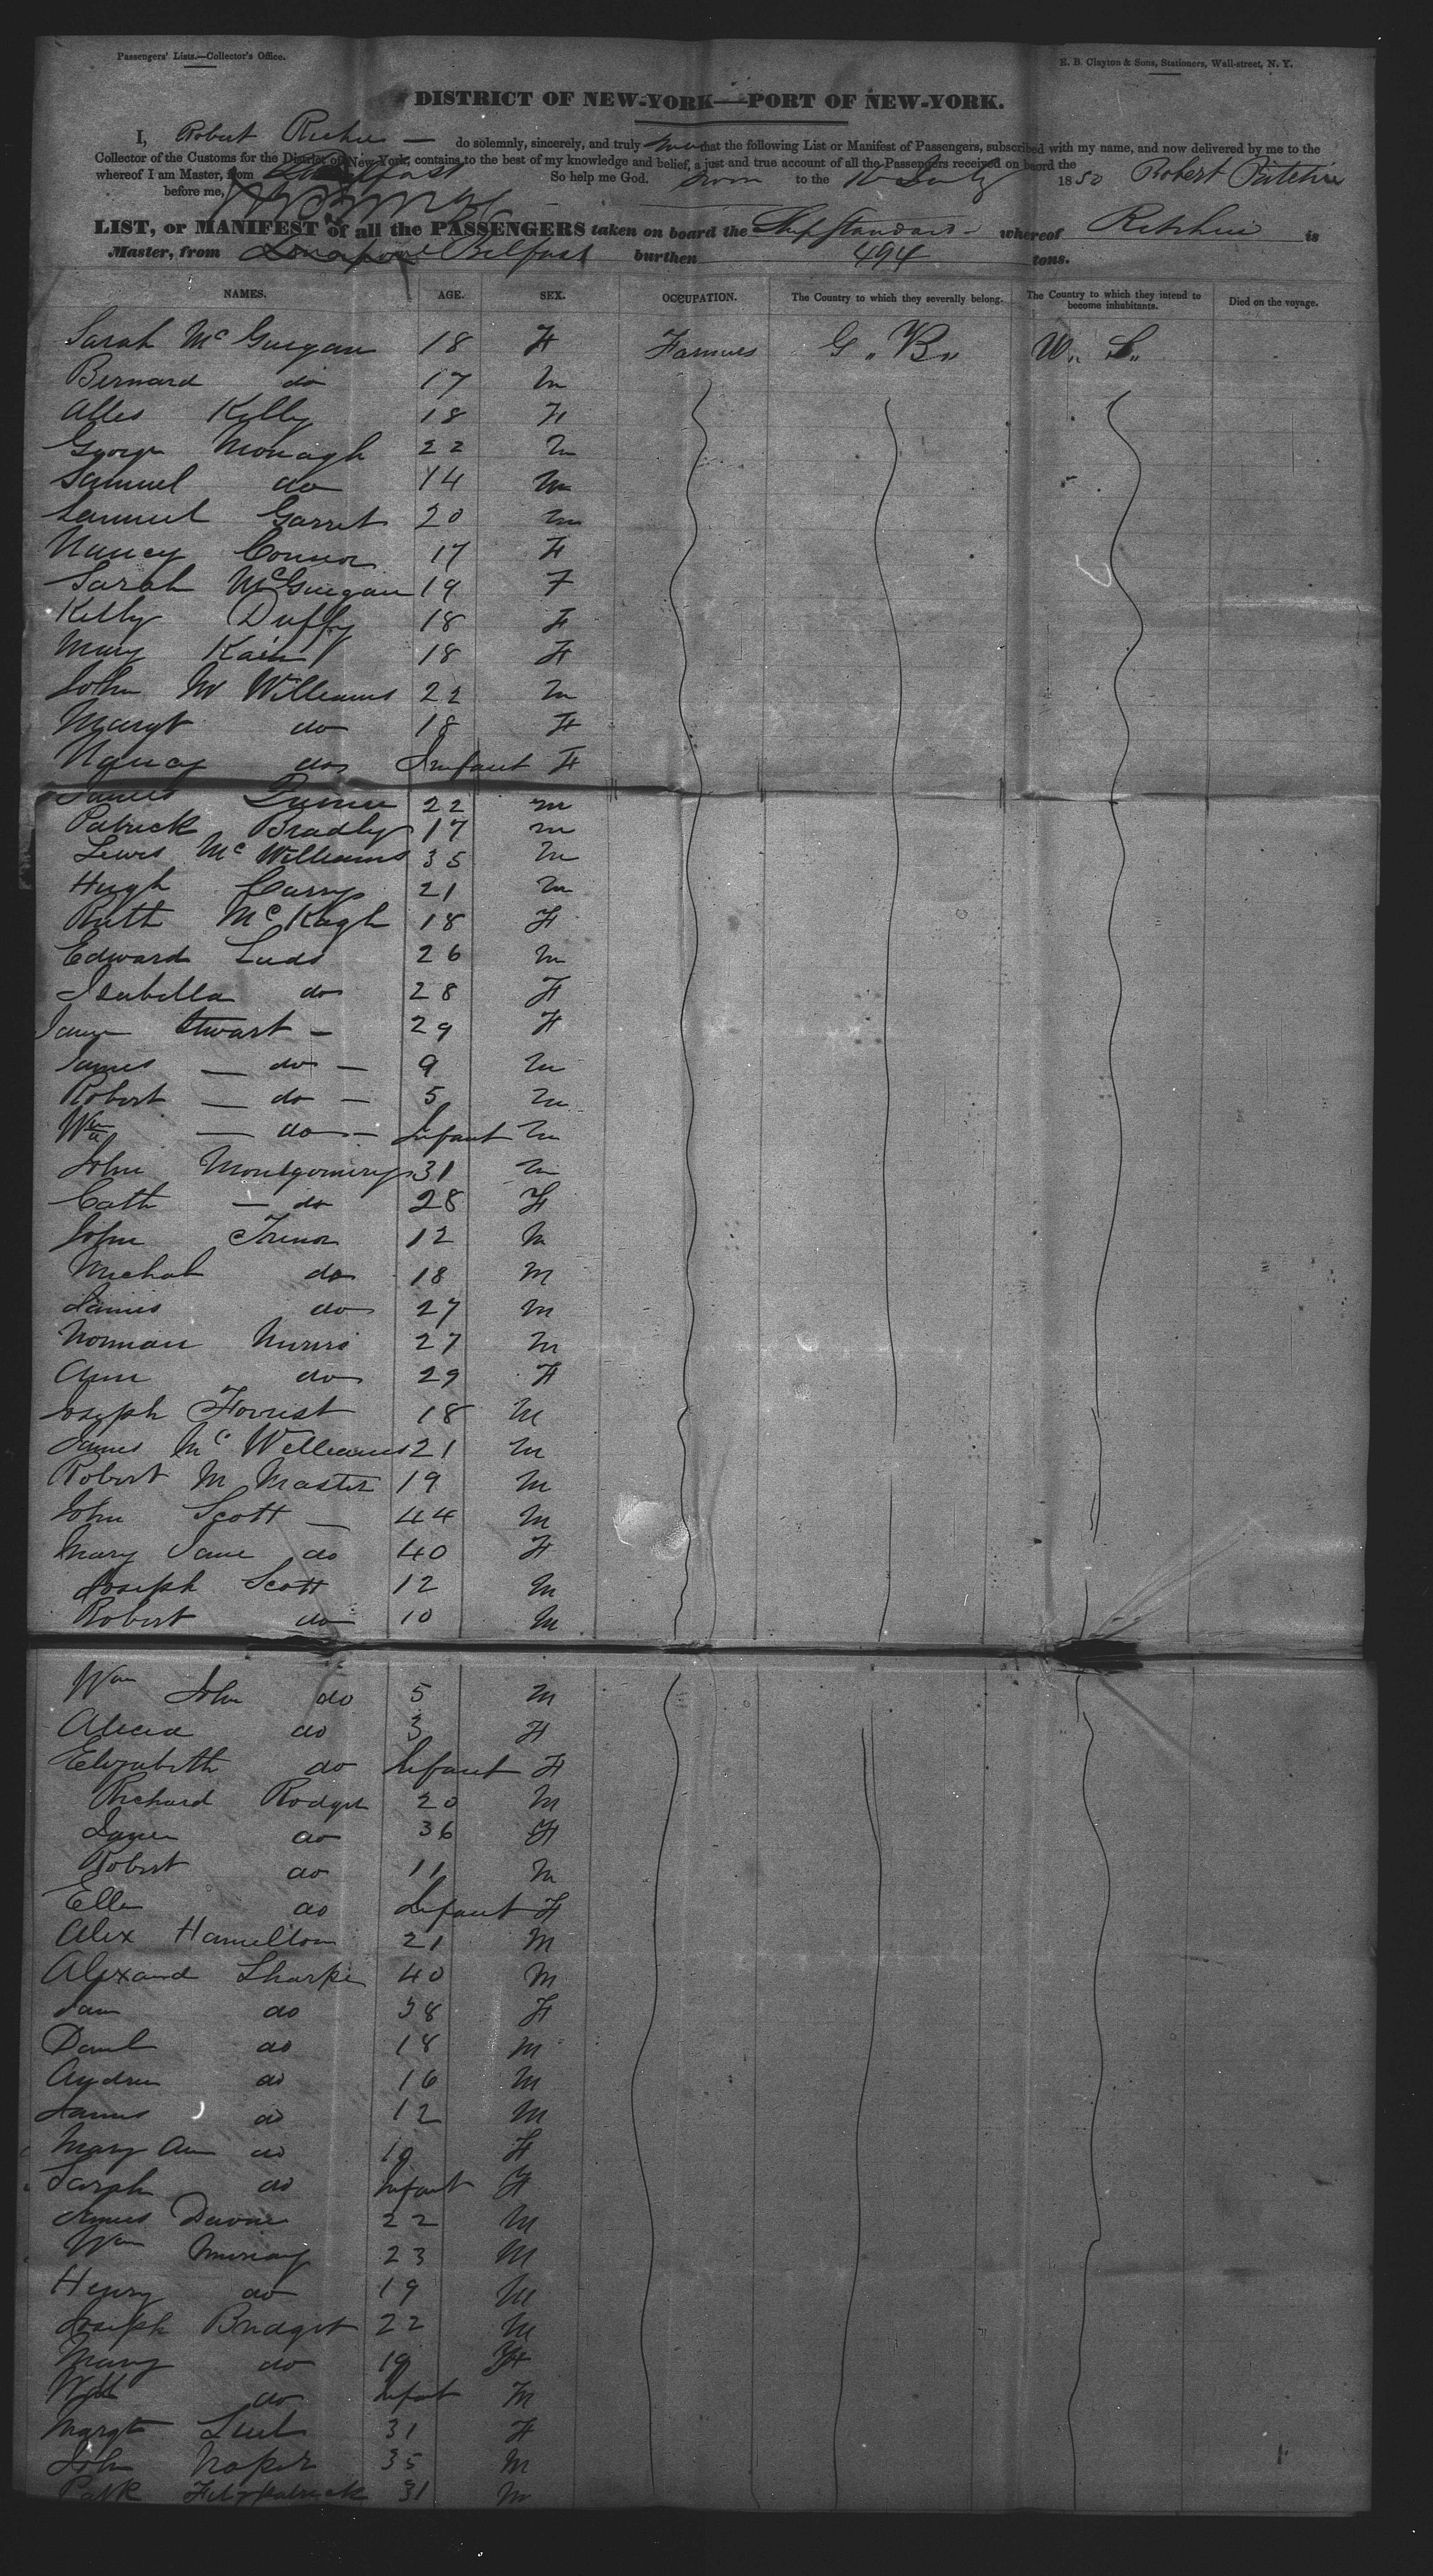 Passengers' Lists.—Collector's Office.
E. B. Clayton & Sons, Stationers, Wall-street, N. Y.
DISTRICT OF NEW-YORK—PORT OF NEW-YORK.
I, Robert Ritchie — do solemnly, sincerely, and truly that the following List or Manifest of Passengers, subscribed with my name, and now delivered by me to the
Collector of the Customs for the District of New-York, contains to the best of my knowledge and belief, a just and true account of all the Passengers received on board the
whereof I am Master, from Belfast So help me God. sworn to the 16 July 1850 Robert Ritchie
before me,
LIST, or MANIFEST of all the PASSENGERS taken on board the Ship Standard whereof Ritchie is
Master, from Liverpool Belfast burthen 494 tons.
NAMES. AGE. SEX. OCCUPATION. The Country to which they severally belong. The Country to which they intend to become inhabitants. Died on the voyage.
Sarah Mc Guigan 18 F Farmers G. B. U. S.
Bernard do 17 M
Alles Kelly 18 F
George Monagh 22 M
Samuel do 14 M
Samuel Garret 20 M
Nancy Connor 17 F
Sarah McGuigan 19 F
Kelly Duffy 18 F
Mary Kain 18 F
John Mc Williams 22 M
Margt do 18 F
Nancy do Infant F
James 22 M
Patrick Bradly 17 M
Lewis Mc Williams 35 M
Hugh Carry 21 M
Ruth Mc Kagh 18 F
Edward Luds 26 M
Isabella do 28 F
Jane Stwart — 29 F
James — do — 9 M
Robert — do — 5 M
Wm — do — Infant M
John Montgomery 31 M
Cath — do 28 F
John Trenor 12 M
Michal do 18 M
James do 27 M
Norman 27 M
Ann do 29 F
Joseph Forrest 18 M
James Mc Williams 21 M
Robert M Master 19 M
John Scott — 44 M
Mary Jane do 40 F
Joseph Scott 12 M
Robert do 10 M
Wm John do 5 M
Alicia do 3 F
Elizabeth do Infant F
Richard Rodger 20 M
Jane do 36 F
Robert do 11 M
Ellen do Infant F
Alex Hamilton 21 M
Alexand Sharpe 40 M
Jane do 38 F
Danl do 18 M
Andrew do 16 M
James do 12 M
Mary Ann do 10 F
Sarah do Infant F
James Devine 22 M
Wm Murray 23 M
Henry do 19 M
Joseph Bridget 22 M
Mary do 19 F
do Infant M
Margt 31 F
John Naper 35 M
Patk Fitzpatrick 31 M